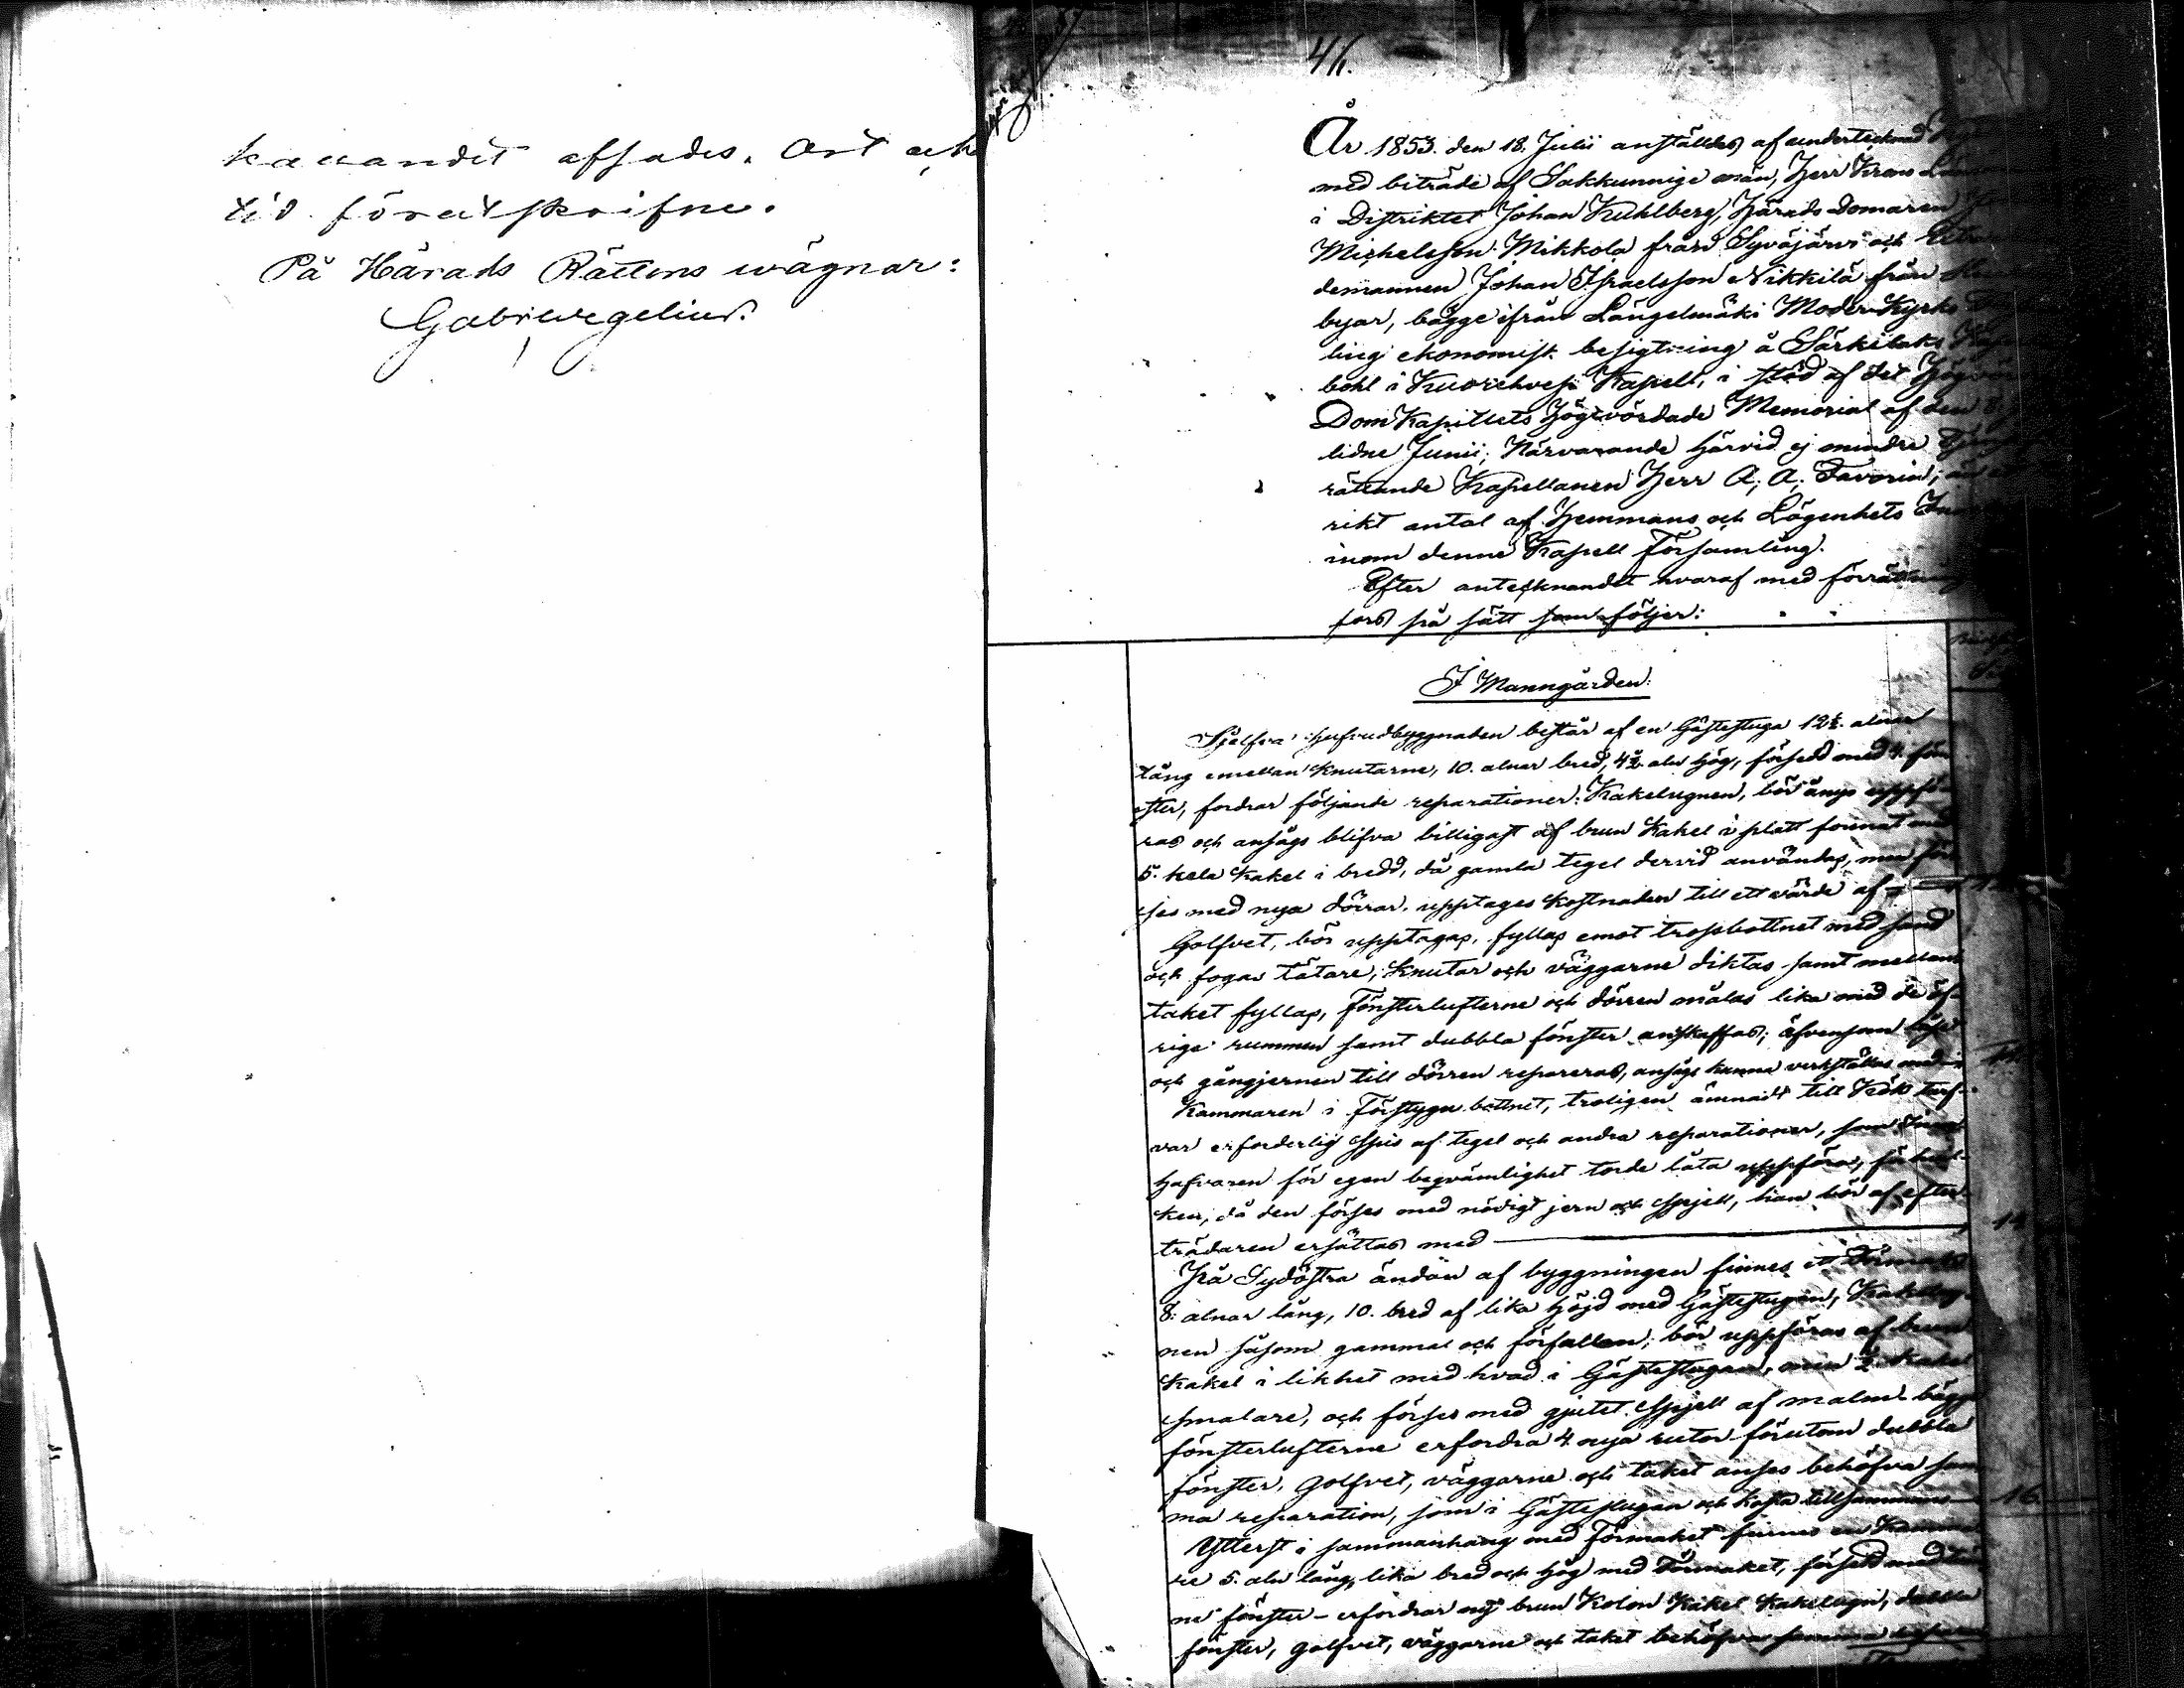 kauandet afsades. Ort och
tid föreskrifne.
På Härads Rättens wägnar:
Gabr. Wegelius.
41.
År 1853. den 18. Julii anställdes af undertecknad
med biträde af Sakkunnige män, Herr Krono
i Distriktet Johan Kuhlberg, Härads Domaren
Michelsson Mikkola från Syväjärvi och
demannen Johan Israelsson Nikkilä från
byar, bägge ifrån Längelmäki Moder Kyrko
ling ekonomisk besigtning å Särkilaks
bohl i Kuorehvesi Kapell, i stöd af det
Dom Kapitlets Högtvördade Memorial af den
lidne Junii; Närvarande härvid ej mindre
rättande Kapellanen Herr A. A. Favorin, än
rikt antal af Hemmans och Lägenhets
inom denne Kapell Församling.
Efter antecknandet hvaraf med förrättning
fors på sätt som följer:
I Manngården:
Sjelfva hufvudbyggnaden består af en Gästestuga 12½ alnar
lång emellan knutarne, 10. alnar bred, 4½ aln hög, försedd med 4. fön
ster, fordrar följande reparationer: Kakelugnen, bör ånyo uppfö
ras och ansågs blifva billigast af brun Kakel i platt format med
5. hela Kakel i bredd, då gamla tegel dervid användas, men för
ses med nya dörrar, upptages kostnaden till ett värde af
Golfvet, bör upptagas, fyllas emot trossbottnet med sand
och fogas tätare; Knutar och väggarne diktas samt mellan
taket fyllas, Fönsterlufterne och dörren målas lika med de öf-
riga rummen samt dubbla fönster anskaffas; äfvensom låset
och gångjernen till dörren repareras, ansågs kunna verkställas med
Kammaren i Förstugu bottnet, troligen ämnadt till Kök tarf-
var erforderlig spis af tegel och andra reparationer, som Inne
hafvaren för egen beqvämlighet torde låta uppföra, för hvil-
ken, då den förses med nödigt jern och spjell, han bör af efter-
trädaren ersättas med
På Sydöstra ändan af byggningen finnes ett Förmak
8. alnar lång, 10. bred af lika höjd med Gästestugan, Kakelug-
nen såsom gammal och förfallen, bör uppföras af brun
Kakel i likhet med hvad i Gästestugan, men ½ Kakel
smalare, och förses med gjutet spjell af malm bägge
fönsterlufterne erfordra 4 nya rutor förutom dubbla
fönster, golfvet, väggarne och taket anses behöfva sam
ma reparation, som i Gästestugan och kosta tillsammans 16.
Ytterst i sammanhang med Förmaket finnes en Kamma
re 5. aln lång, lika bred och hög med Förmaket, försedd med
ne fönster - erfordrar ny brun Kolon Kakel Kakelugn, dubbla
fönster, golfvet, väggarne och taket behöfva samma